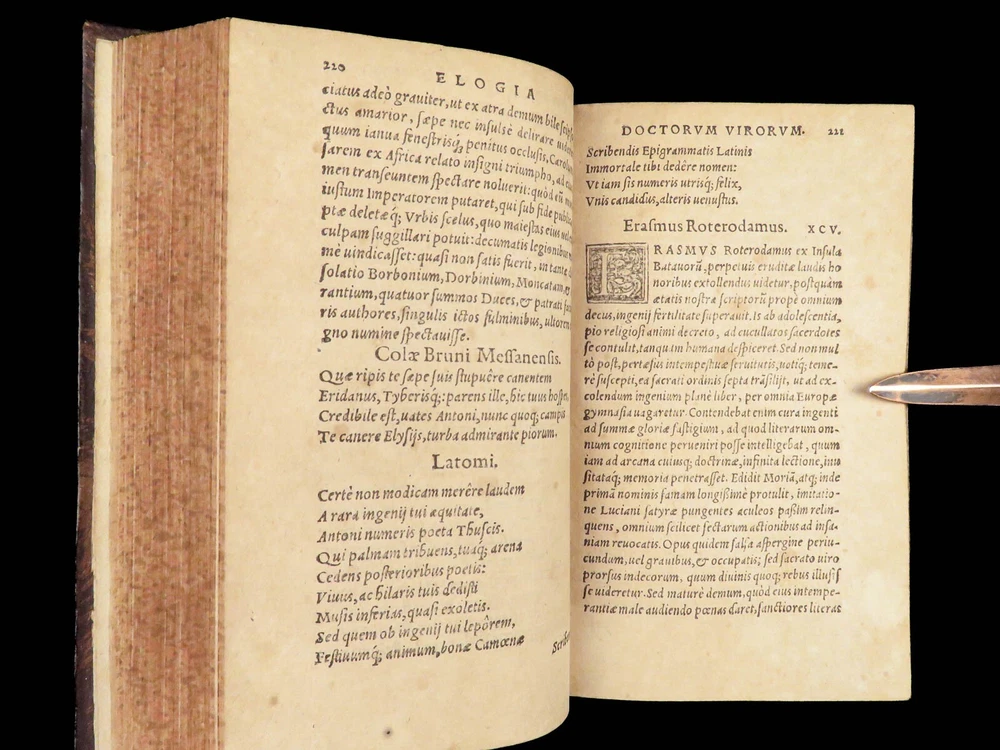 220
ELOGIA
ciatus adeò grauiter, ut ex atra demum bile
ctus amarior, sæpe nec insulsè delirare
quum ianua fenestrisq́; penitus occlusis,
sarem ex Africa relato insigni triumpho, ad
men transeuntem spectare noluerit: quòd eũ
iustum Imperatorem putaret, qui sub fide
ptæ deletæq́; Vrbis scelus, quo maiestas eius
culpam suggillari potuit: decumatis legionibus
mè uindicasset: quasi non satis fuerit, in
solatio Borbonium, Dorbinium, Moncatam, &
rantium, quatuor summos Duces, & patrati
ris authores, singulis ictos fulminibus,
gno numine spectauisse.
Colæ Bruni Messanensis.
Quæ ripis te sæpe suis stupuêre canentem
Eridanus, Tyberisq́;: parens ille, hic tuus
Credibile est, uates Antoni, nunc quoq; campis
Te canere Elysijs, turba admirante piorum.
Latomi.
Certè non modicam merêre laudem
A rara ingenij tui æquitate,
Antoni numeris poeta Thuscis.
Qui palmam tribuens, tuaq́; arena
Cedens posterioribus poetis:
Viuus, ac hilaris tuis dedisti
Musis inferias, quasi exoletis.
Sed quem ob ingenij tui lepôrem,
Festiuumq́; animum, bonæ Camœnæ
DOCTORVM VIRORVM. 221
Scribendis Epigrammatis Latinis
Immortale tibi dedêre nomen:
Vt iam sis numeris utrisq́; felix,
Vnis candidus, alteris uenustus.
Erasmus Roterodamus. XCV.
ERASMVS Roterodamus ex Insula
Batauorũ, perpetuis eruditæ laudis ho
noribus extollendus uidetur, postquàm
ætatis nostræ scriptorũ propè omnium
decus, ingenij fertilitate superauit. Is ab adolescentia,
pio religiosi animi decreto, ad cucullatos sacerdotes
se contulit, tanquam humana despiceret. Sed non mul
tò pòst, pertæsus intempestiuæ seruitutis, uotiq́; teme-
rè suscepti, ea sacrati ordinis septa trãsilijt, ut ad ex-
colendum ingenium planè liber, per omnia Europæ
gymnasia uagaretur. Contendebat enim cura ingenti
ad summæ gloriæ fastigium, ad quod literarum om-
nium cognitione perueniri posse intelligebat, quum
iam ad arcana cuiusq́; doctrinæ, infinita lectione, inu
sitataq́; memoria penetrasset. Edidit Moriã, atq; inde
primã nominis famam longissimè protulit, imitatio-
ne Luciani satyræ pungentes aculeos passim relin-
quens, omnium scilicet sectarum actionibus ad insa-
niam reuocatis. Opus quidem salsa aspergine periu-
cundum, uel grauibus, & occupatis; sed sacrato uiro
prorsus indecorum, quum diuinis quoq; rebus illusis
se uideretur. Sed maturè demum, quòd eius intempe-
rantiæ male audiendo pœnas daret, sanctiores literas